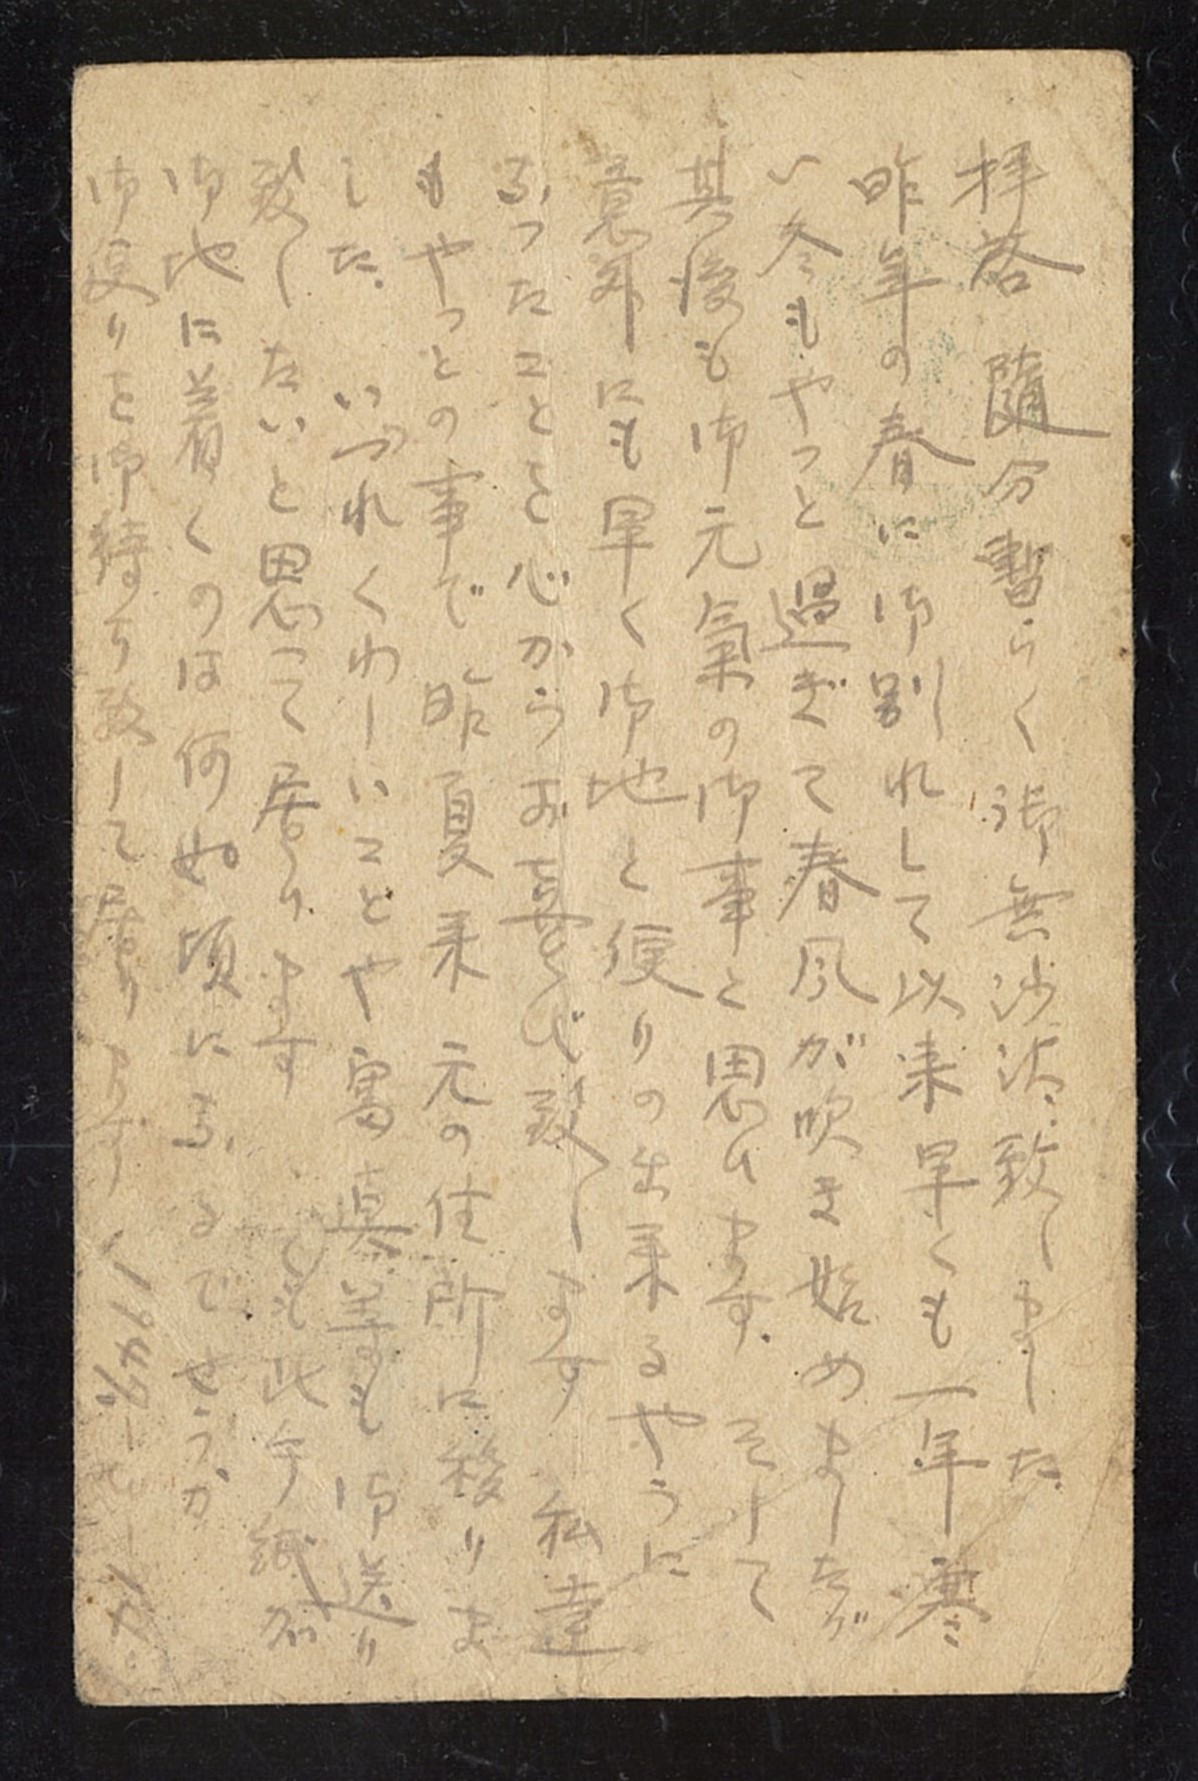 拝啓 随分暫らく御無沙汰致しました
昨年の春に御別れして以来早くも一年寒
い冬もやっと過ぎて春風が吹き始めましたが
其後も御元氣の御事と思ひます. そして
意外にも早く御地と便りの出来るやうに
なったことを心からお喜び致します 私達
もやっとの事で昨夏来元の住所に移りま
した. いづれくわしいことや写真等も御送り
致したいと思って居ります でも此手紙が
御地に着くのは何如頃になるでせうか
御便りを御待ち致して居ります